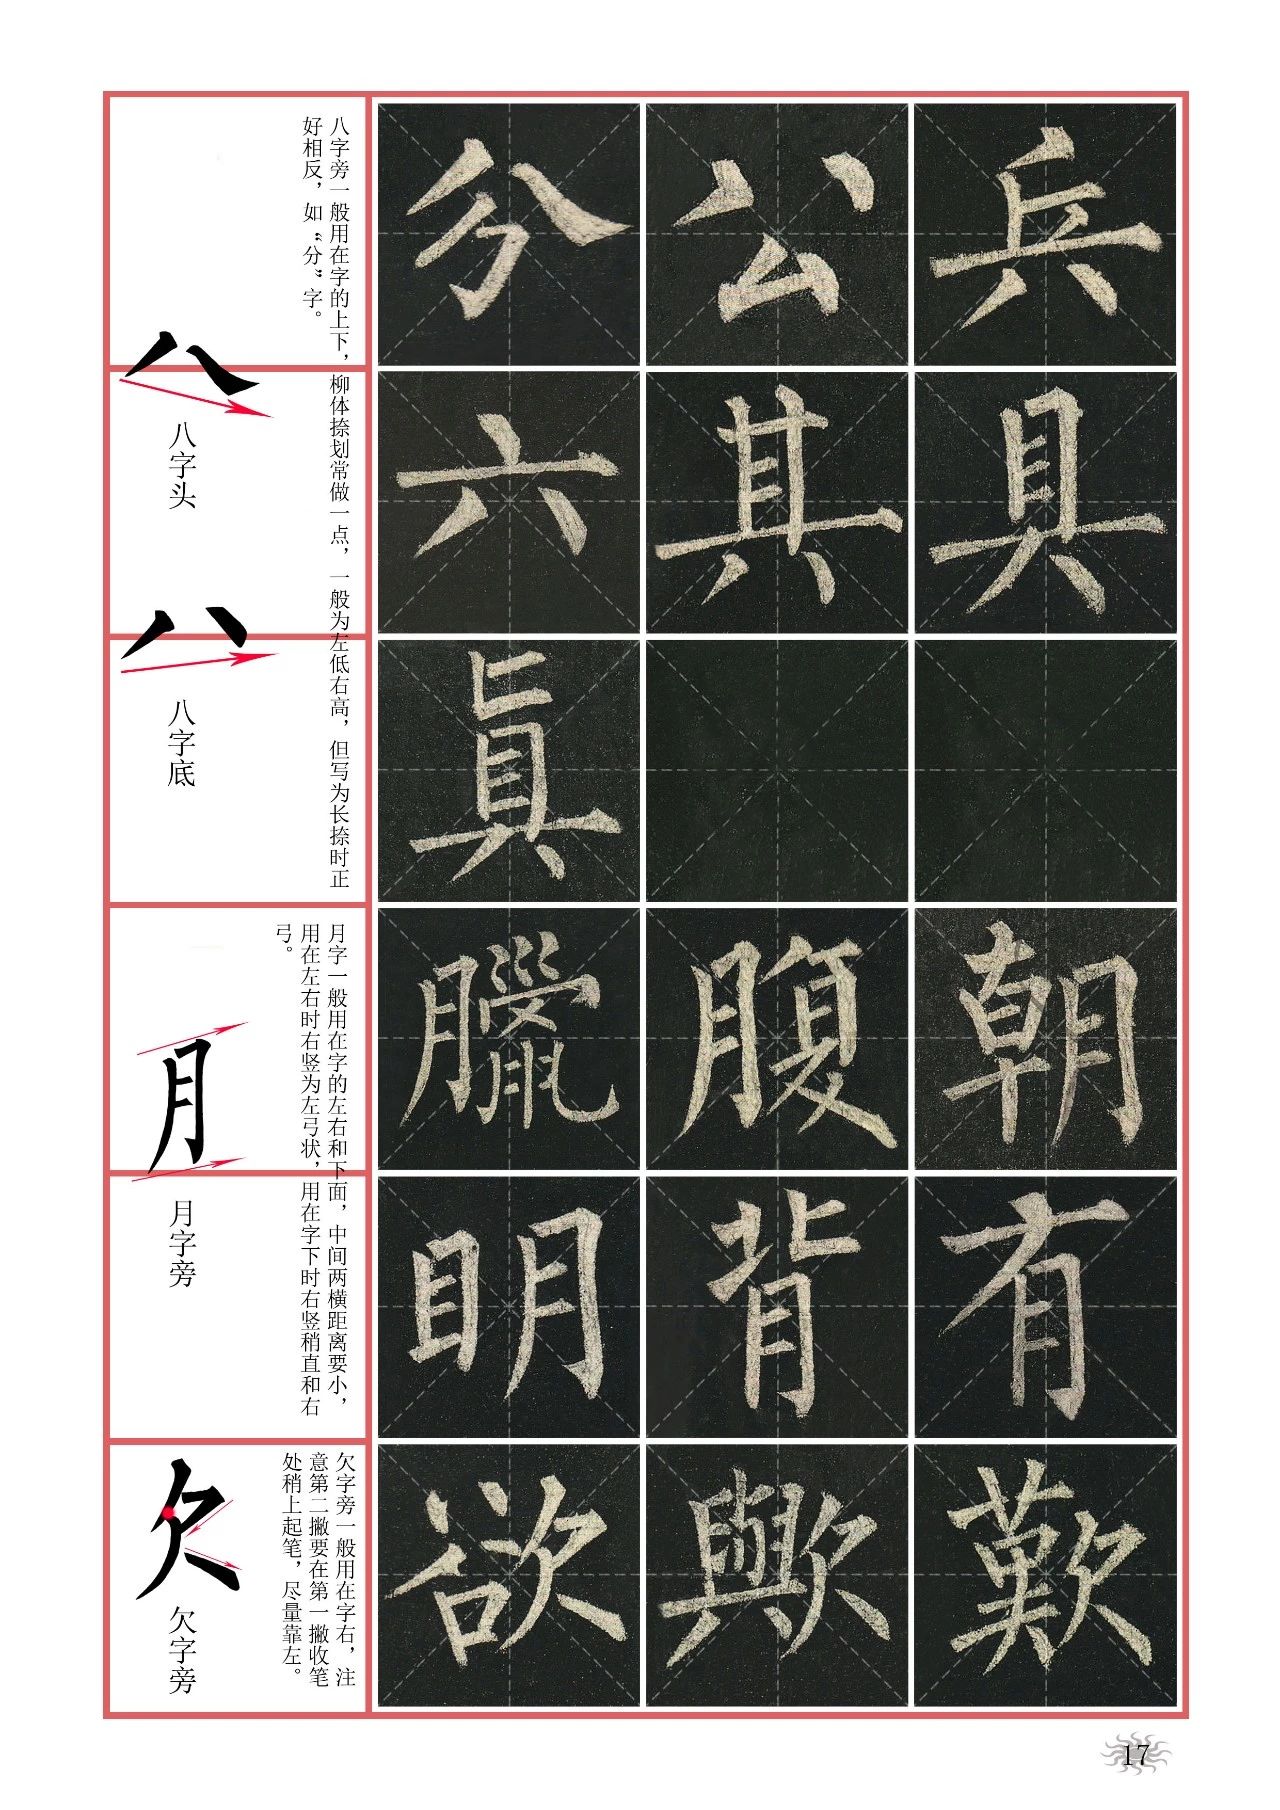 八字旁一般用在字的上下，柳体捺划常做一点，一般为左低右高，但写为长捺时正
好相反，如“分”字。
八字头
八字底
分公兵
六其具
真
月字一般用在字的左右和下面，中间两横距离要小，
用在左右时右竖为左弓状，用在字下时右竖稍直和右
弓。
月字旁
臘腹朝
明背有
欠字旁一般用在字右，注
意第二撇要在第一撇收笔
处稍上起笔，尽量靠左。
欠字旁
欲歟歎
17